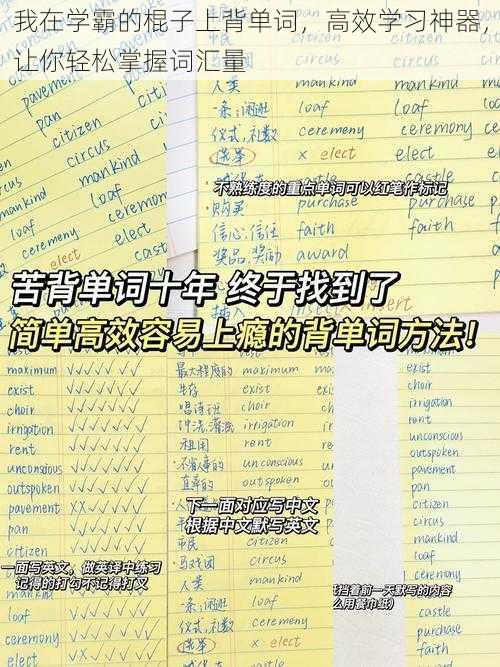 我在学霸的棍子上背单词，高效学习神器，
让你轻松掌握词汇量
pavement
pan
citizen
circus
mankind
loaf
ceremeny
elect
castle
人类 mankind mankind
一条;闲逛 loaf loaf
仪式,礼数 ceremeny ceremony
选举 x elect elect
不熟练度的重点单词可以红笔作标记
购买 purchase purchase
信心,信任 faith faith
奖品,奖励 award
插入
苦背单词十年 终于找到了
简单高效容易上瘾的背单词方法!
maximum
exist
choir
irrigation
rent
unconscious
outspoken
pavement
pan
citizen
一面写英文，做英译中练习
记得的打勾不记得打叉
loaf
ceremony
elect
最大程度的 maximum maximum
生存 exist exist
唱诗班 choir choir
冲洗,灌溉 irrigation
租用 rent rent
不省人事的 unconscious
直率的 outspoken
下一面对应写中文
根据中文默写英文
市民 citizen
马戏团 circus
人类 mankind
一条;闲逛 loaf
仪式,礼数 ceremony
选举 x elect
exist
choir
irrigation
rent
unconscious
outspoken
pavement
pan
citizen
circus
mankind
挡着前一天默写的内容
么用餐巾纸)
castle
purchase
faith